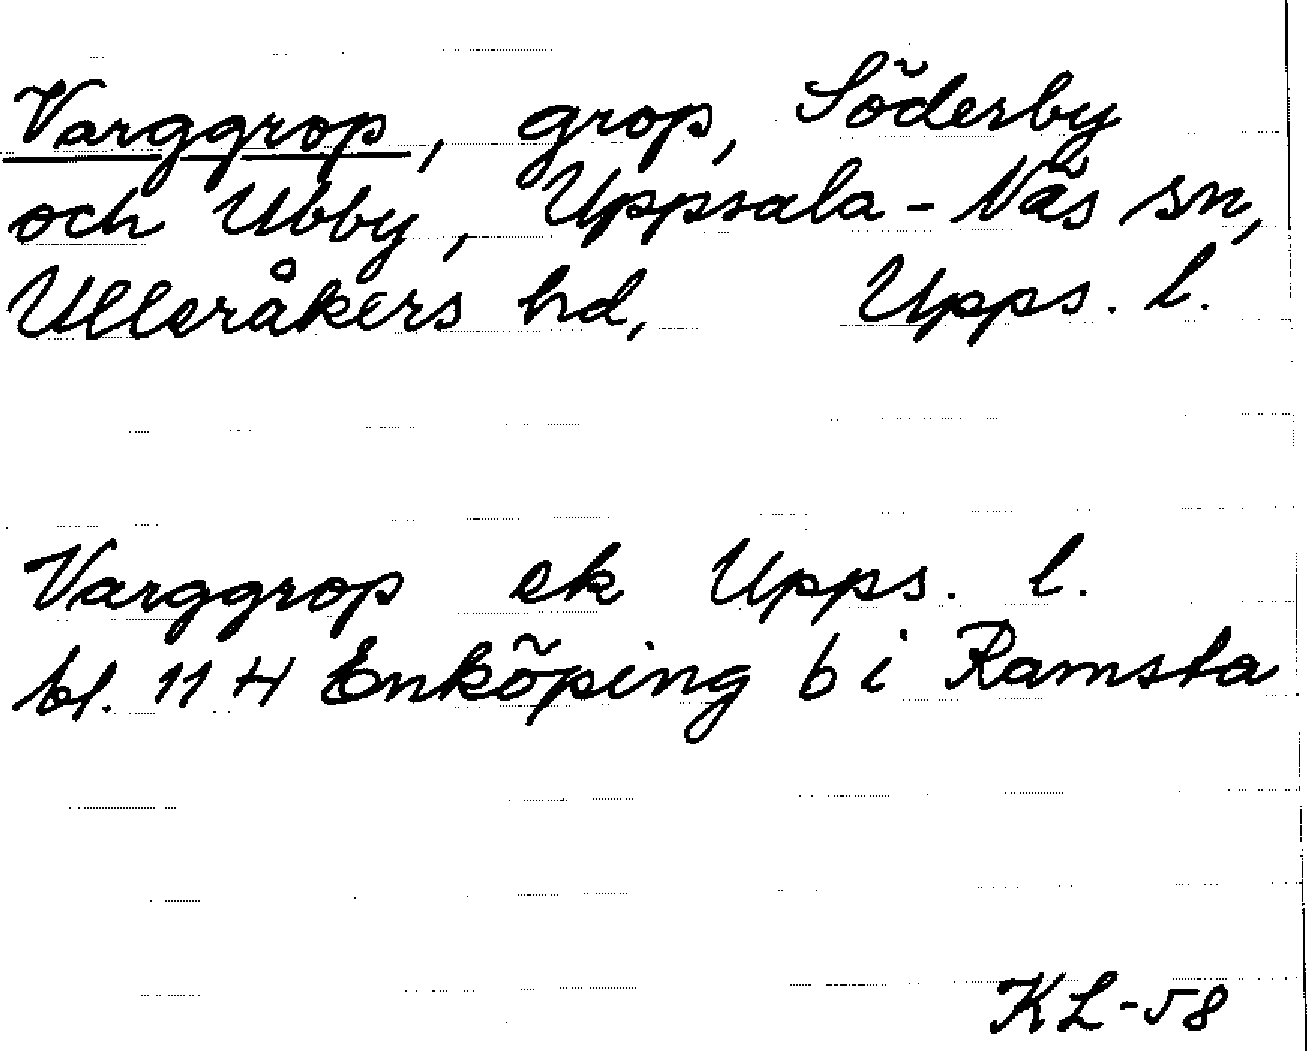 Varggrop, grop, Söderby
och Ubby, Uppsala-Näs sn,
Ulleråkers hd, Upps. l.
Varggrop ek Upps. l.
bl. 114 Enköping b i Ramsta
KL-58